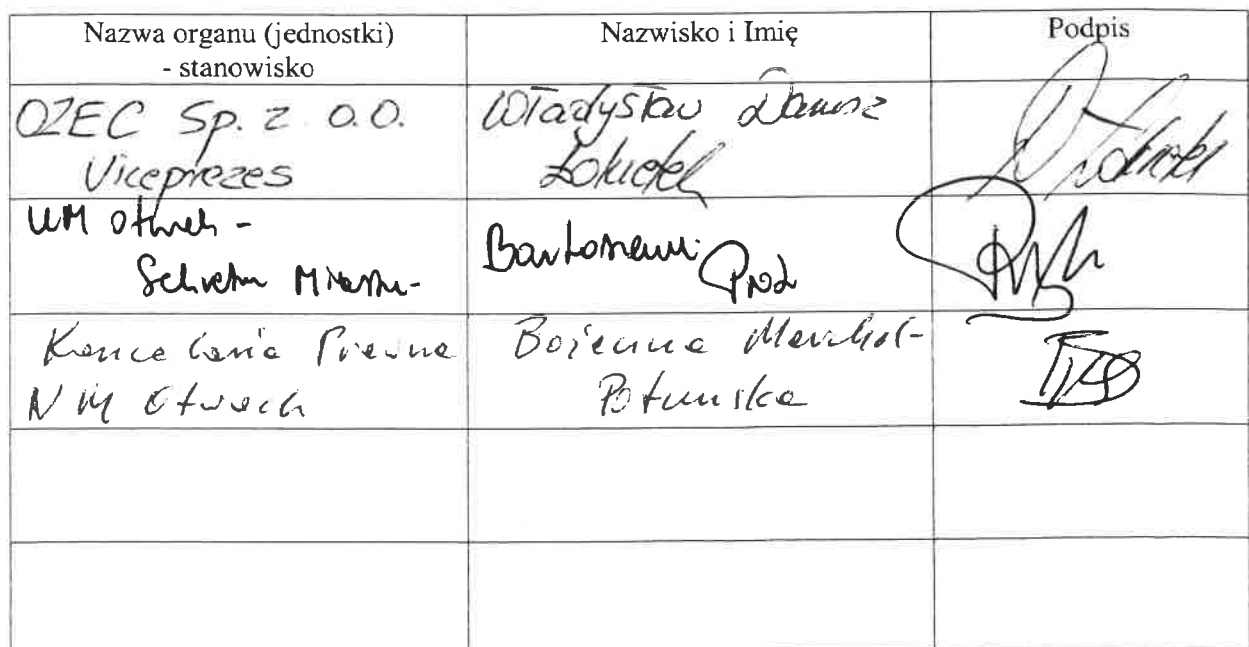 Nazwa organu (jednostki)
- stanowisko
Nazwisko i Imię
Podpis
OZEC Sp. z o.o.
Viceprezes
Władysław Dariusz
Łokietek
UM Otwock -
Sekretarz Miasta
Bartłomiej
Kancelaria Prawna
UM Otwock
Bożenna